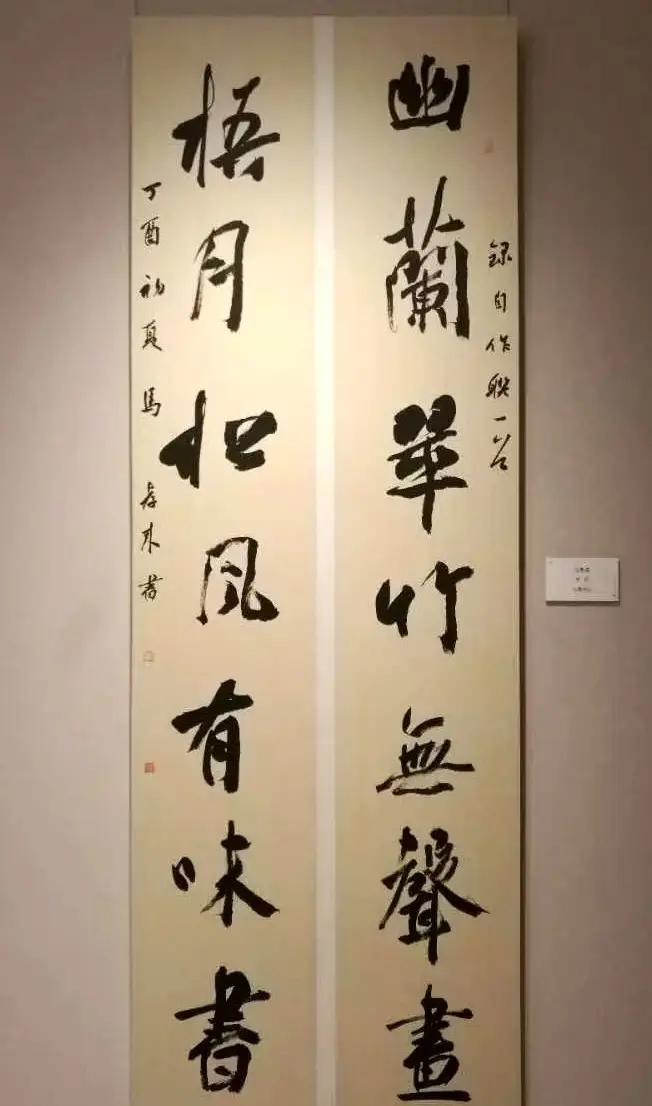 錄自作聯一
幽蘭翠竹無聲畫
梧月松風有味書
丁酉初夏馬來書